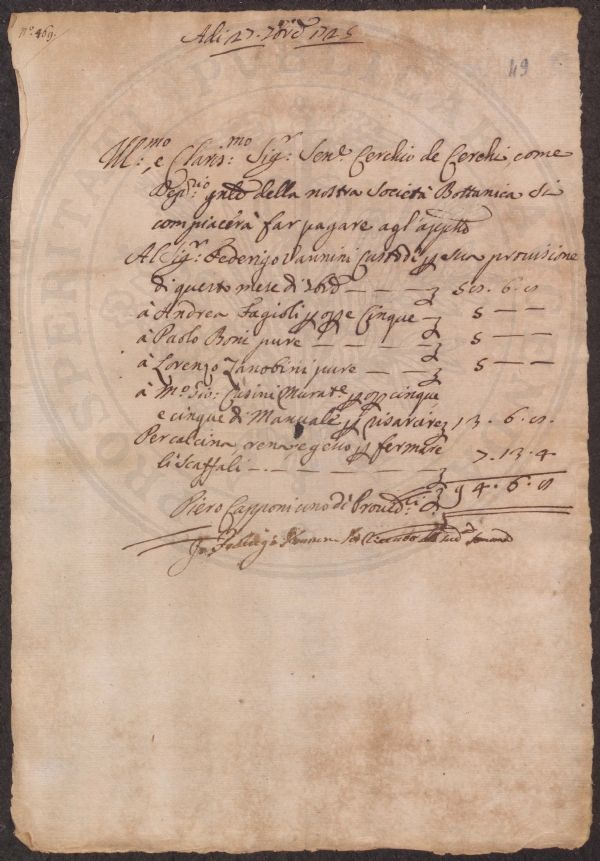 n.° 469.
Adi 27. 7bre 1725
49
Ill:mo, e Claris:mo Sig.r Sen.e Cerchio de Cerchi, come
Dep:rio della nostra Società Bottanica si
compiacerà far pagare agl'
Al Sig.r: Federigo Vannini Custode p sua provisione
di questo mese di 7bre — — — 6.
à Andrea Fagioli p op.e Cinque — 5 — —
à Paolo Boni pure — — — — 5 — —
à Lorenzo Zanobini pure — — — 5 — —
à M.o Gio: Cusini Murat.e p op cinque
e cinque di Manuale p risarcire 13. 6.
Per calcina, rena e gesso p fermare
li Scaffali — — — — 7. 13. 4
94. 6.
Piero Capponi uno di Proved:ri
Io